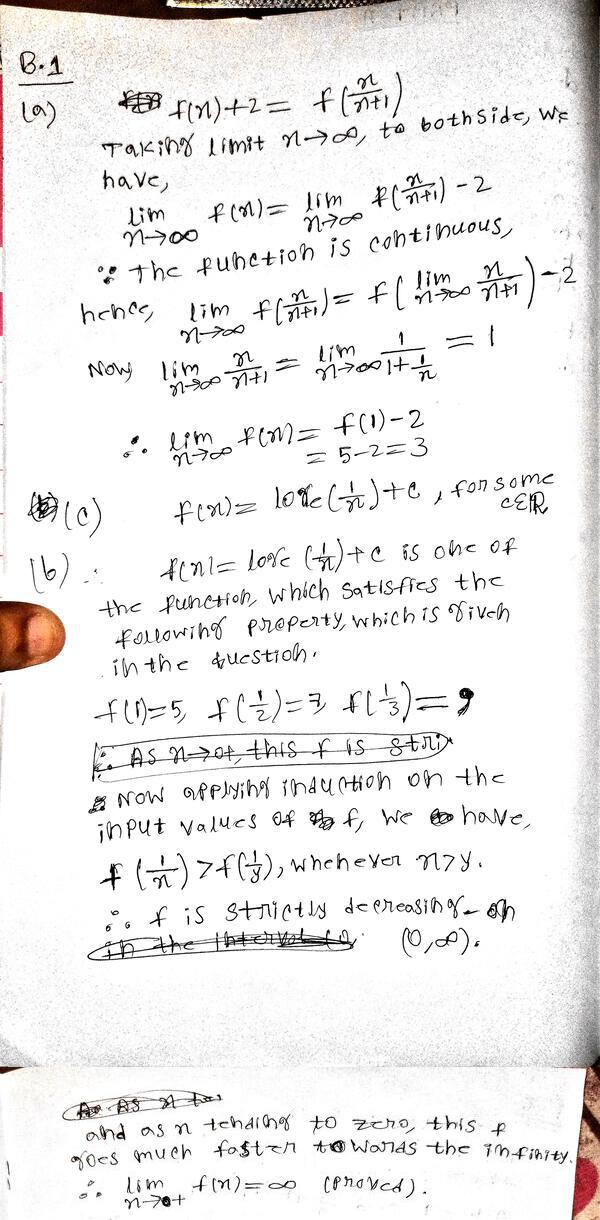 B.1
(a) f(x)+2 = f(x/x+1)
Taking limit x→∞, to bothside, we
have,
lim x→∞ f(x) = lim x→∞ f(x/x+1) - 2
∵ The function is continuous,
hence, lim x→∞ f(x/x+1) = f(lim x→∞ x/x+1) - 2
Now lim x→∞ x/x+1 = lim x→∞ 1/1+1/x = 1
∴ lim x→∞ f(x) = f(1) - 2
= 5-2 = 3
(c) f(x) = (1/x) + c, for some
c∈ℝ
(b) ∴ f(x) = (1/x) + c is one of
the function, which satisfies the
following property, which is given
in the question.
f(1)=5, f(1/2)=7, f(1/3)=9
∴ As x→0+, this f is stri
Now applying induction on the
input values of f, we have,
f(1/x) > f(1/y), whenever x>y.
∴ f is strictly decreasing on
in the interval (0,∞).
As x
and as x tending to zero, this f
goes much faster towards the infinity.
∴ lim x→0+ f(x) = ∞ (proved).